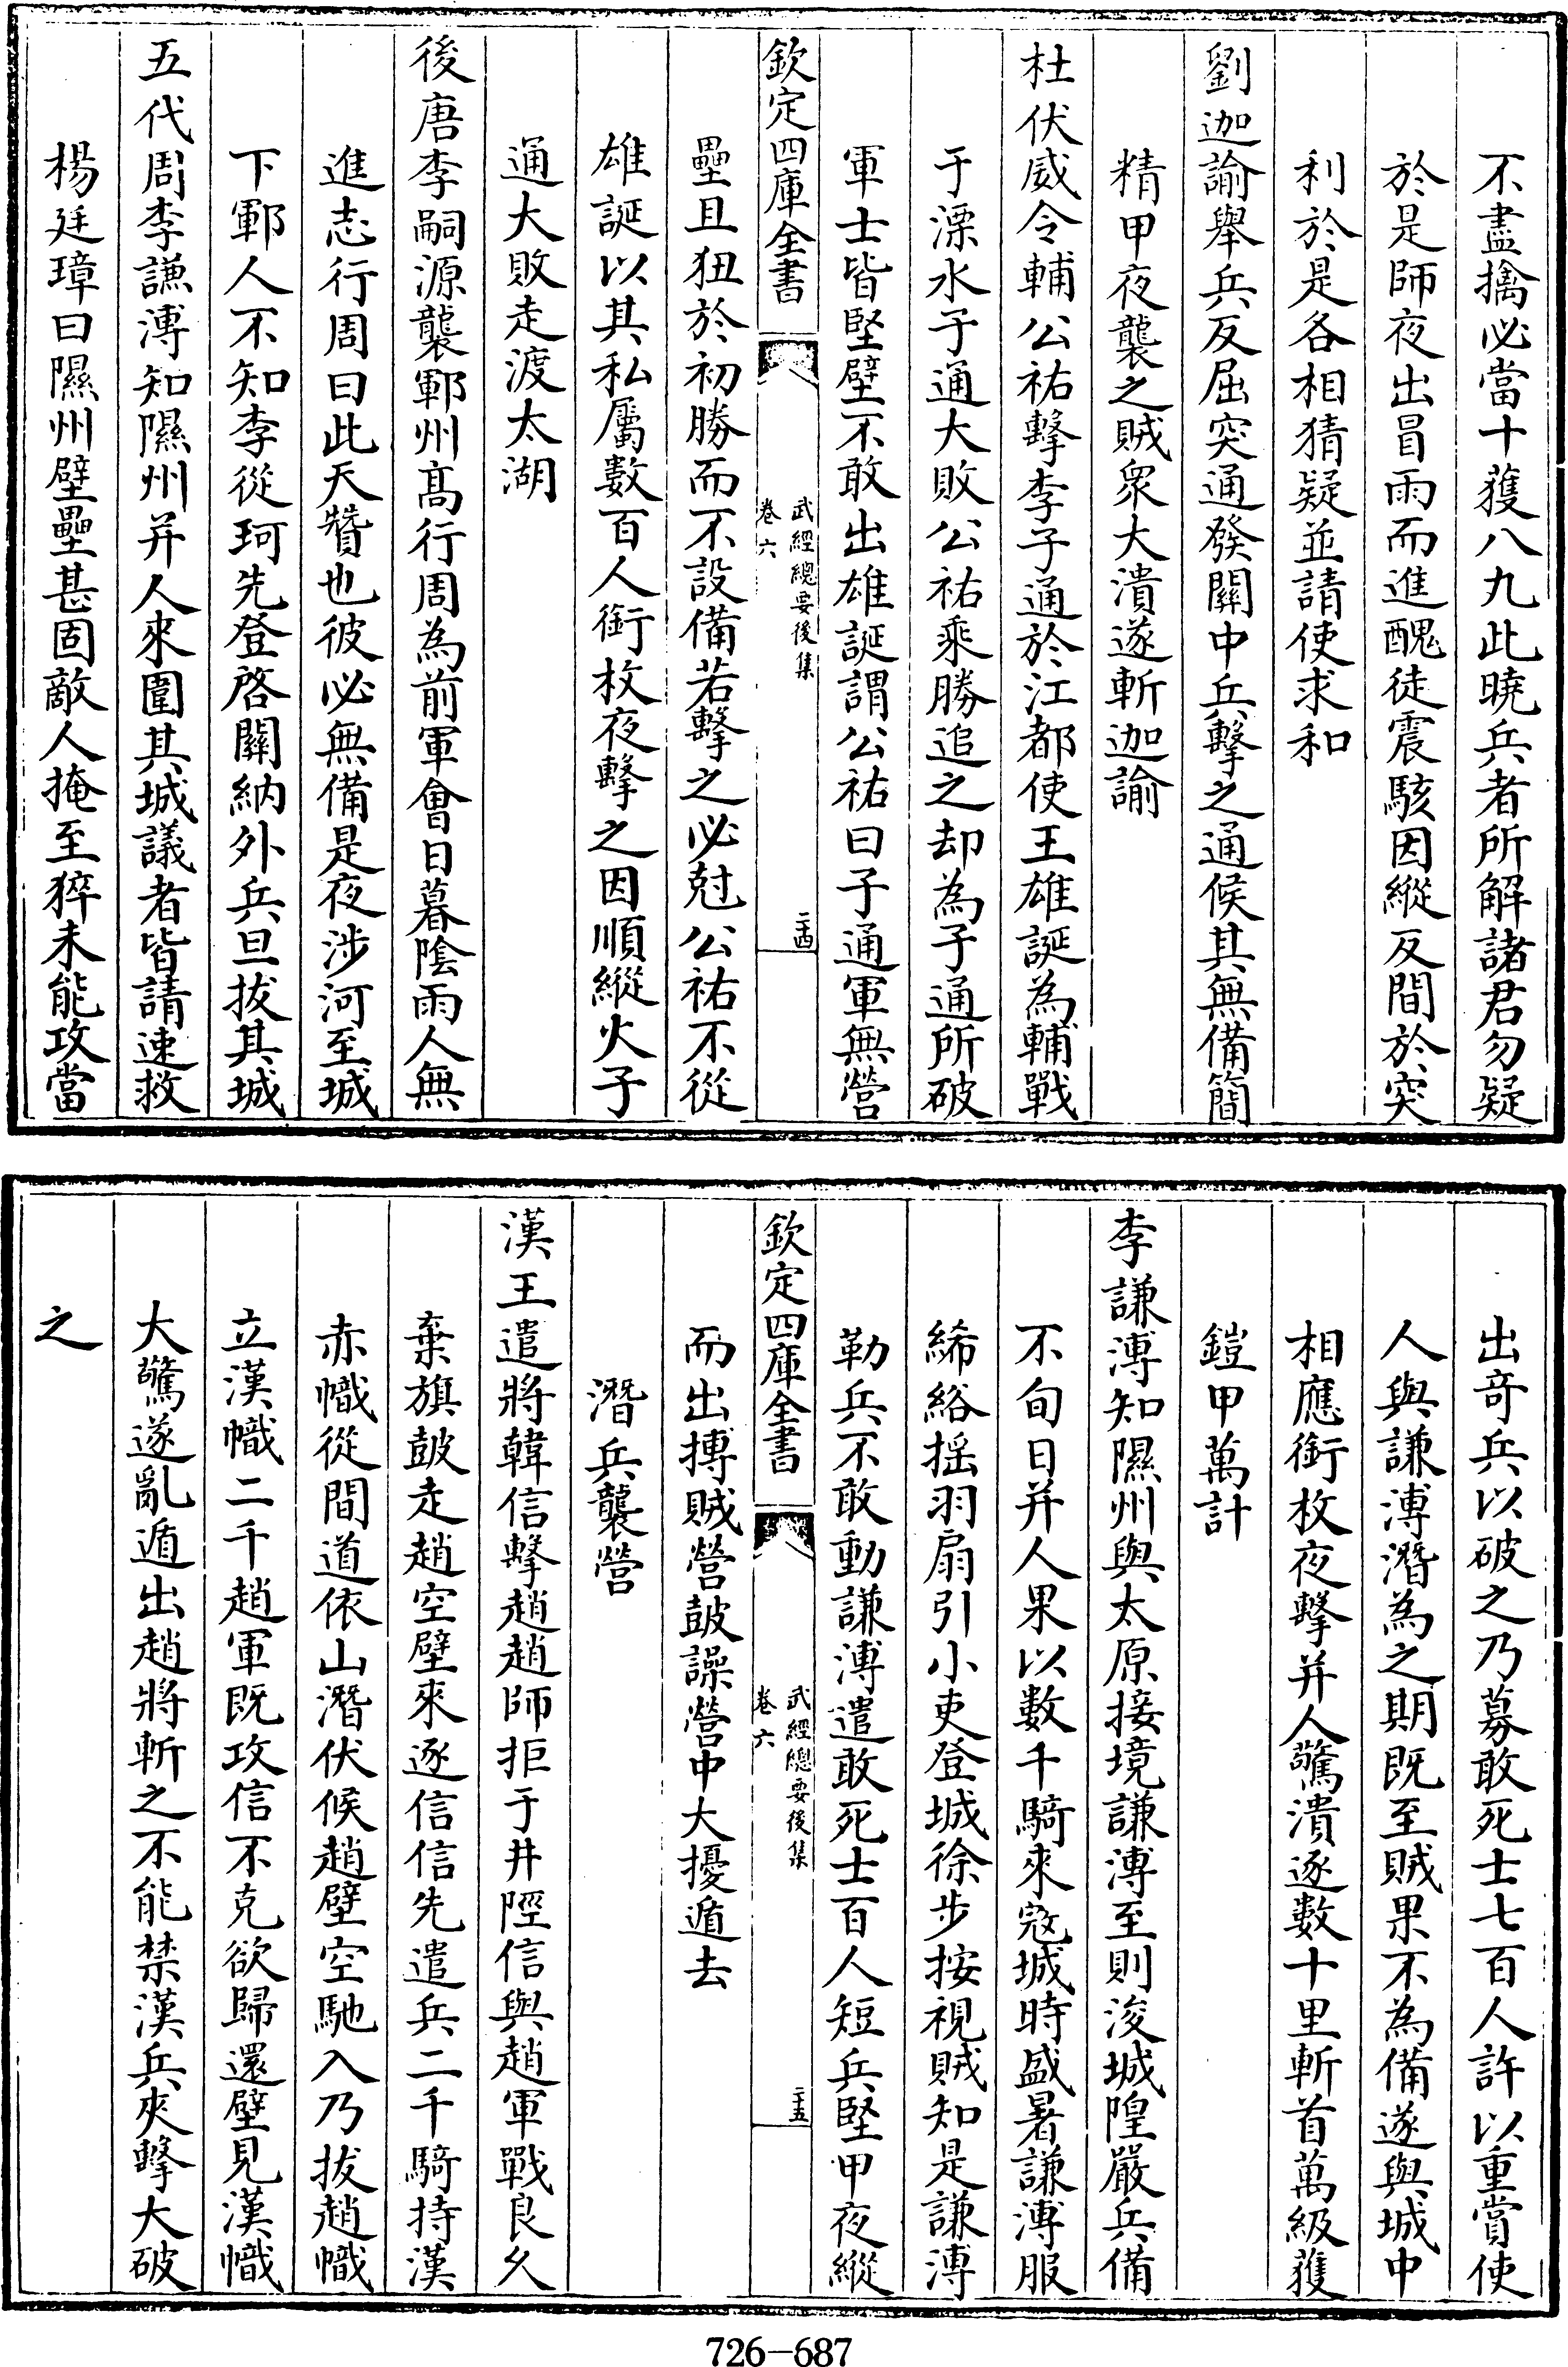 不盡擒必當十獲八九此曉兵者所解諸君勿疑
於是師夜出冒雨而進醜徒震駭因縱反間於突
利於是各相猜疑並請使求和
劉迦論舉兵反屈突通發關中兵擊之通候其無備簡
精甲夜襲之賊衆大潰遂斬迦論
杜伏威令輔公祐擊李子通於江都使王雄誕為輔戰
于溧水子通大敗公祐乘勝追之却為子通所破
軍士皆堅壁不敢出雄誕謂公祐曰子通軍無營
欽定四庫全書
武經總要後集
卷六
二十四
壘且狃於初勝而不設備若擊之必尅公祐不從
雄誕以其私屬數百人銜枚夜擊之因順縱火子
通大敗走渡太湖
後唐李嗣源襲鄆州髙行周為前軍會日暮陰雨人無
進志行周曰此天贊也彼必無備是夜涉河至城
下鄆人不知李從珂先登啓關納外兵旦拔其城
五代周李謙溥知隰州并人來圍其城議者皆請速救
楊廷璋曰隰州壁壘甚固敵人掩至猝未能攻當
出竒兵以破之乃募敢死士七百人許以重賞使
人與謙溥潛為之期既至賊果不為備遂與城中
相應銜枚夜擊并人驚潰逐數十里斬首萬級獲
鎧甲萬計
李謙溥知隰州與太原接境謙溥至則浚城隍嚴兵備
不旬日并人果以數千騎來寇城時盛暑謙溥服
絺綌揺羽扇引小吏登城徐步按視賊知是謙溥
勒兵不敢動謙溥遣敢死士百人短兵堅甲夜縱
欽定四庫全書
武經總要後集
卷六
二十五
而出搏賊營皷譟營中大擾遁去
潛兵襲營
漢王遣將韓信擊趙趙師拒于井陘信與趙軍戰良久
棄旗皷走趙空壁來逐信信先遣兵二千騎持漢
赤幟從間道依山潛伏候趙壁空馳入乃拔趙幟
立漢幟二千趙軍既攻信不克欲歸還壁見漢幟
大驚遂亂遁出趙將斬之不能禁漢兵夾擊大破
之
726-687